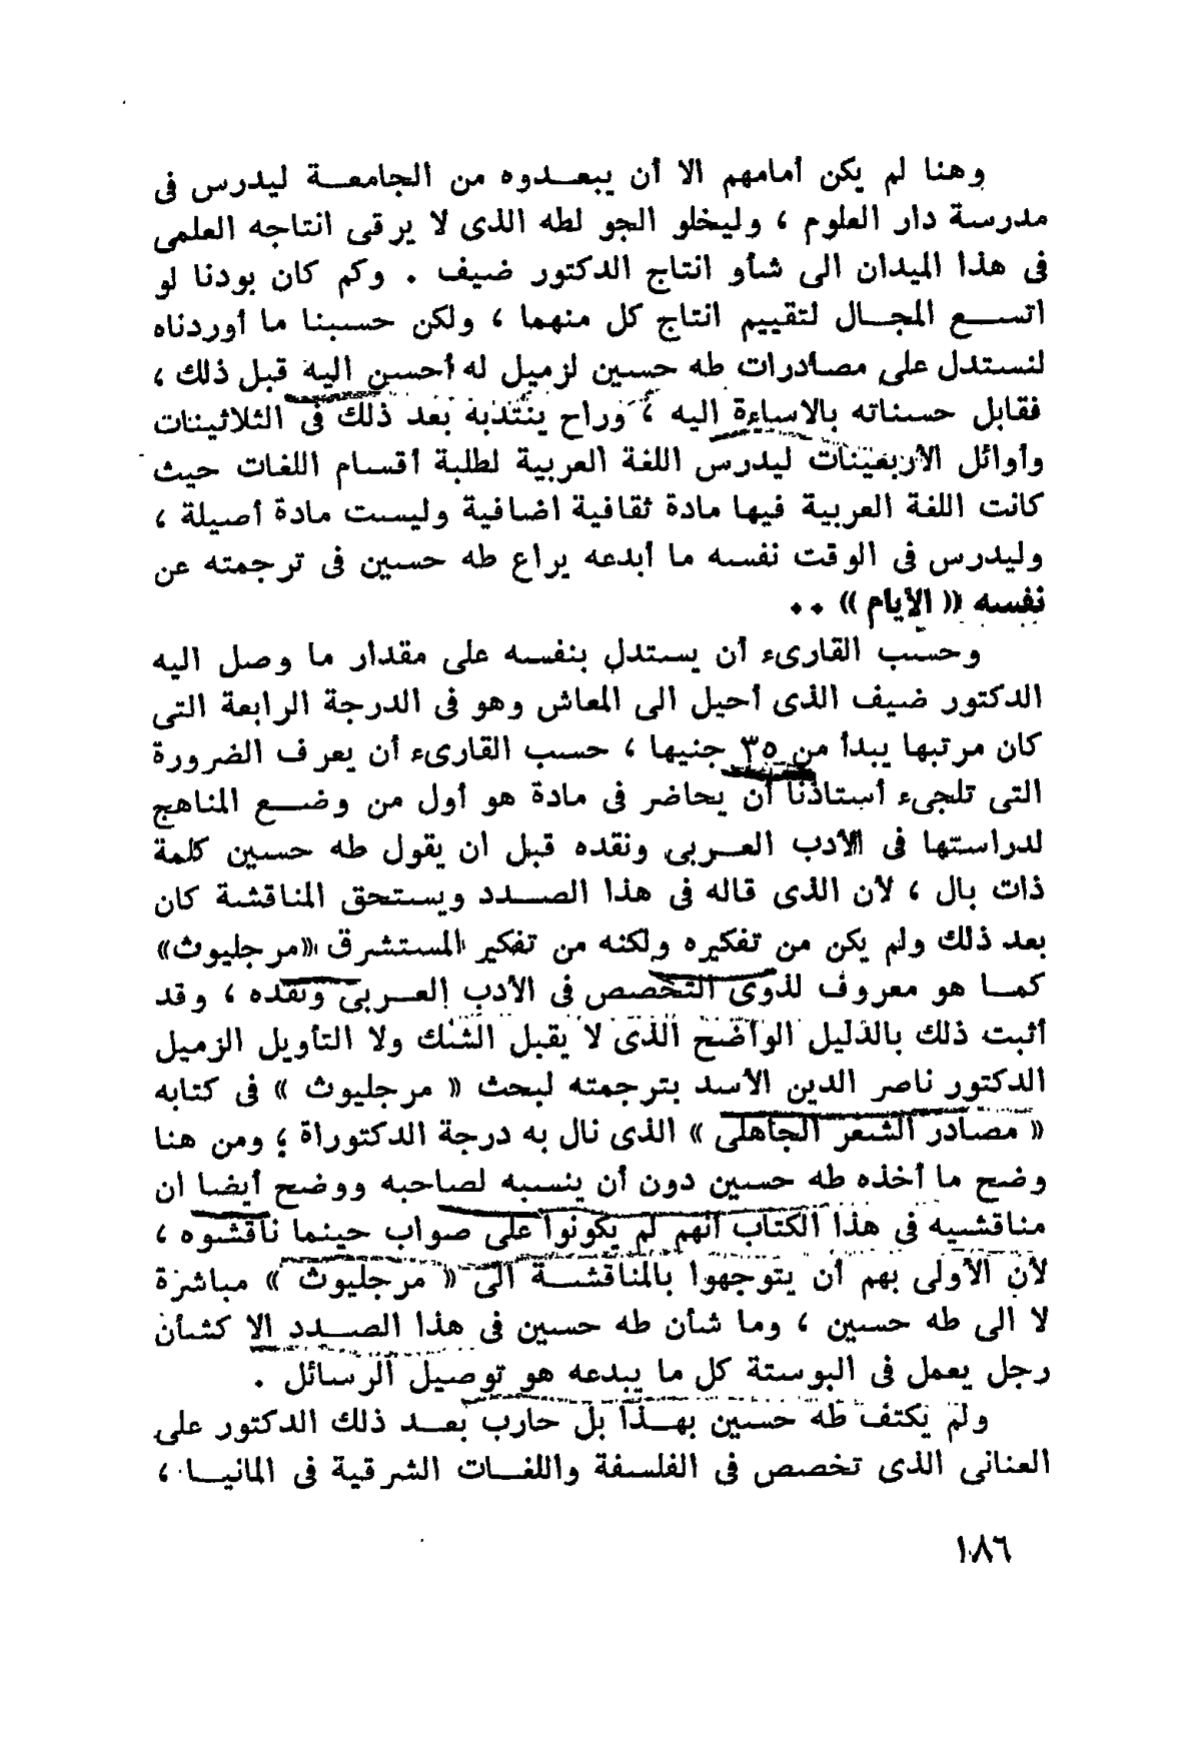 وهنا لم يكن أمامهم الا أن يبعدوه من الجامعة ليدرس فى
مدرسة دار العلوم ، وليخلو الجو لطه الذى لا يرقى انتاجه العلمى
فى هذا الميدان الى شأو انتاج الدكتور ضيف . وكم كان بودنا لو
اتسع المجال لتقييم انتاج كل منهما ، ولكن حسبنا ما أوردناه
لنستدل على مصادرات طه حسين لزميل له أحسن اليه قبل ذلك ،
فقابل حسناته بالاساءة اليه ، وراح ينتدبه بعد ذلك فى الثلاثينات
وأوائل الأربعينات ليدرس اللغة العربية لطلبة أقسام اللغات حيث
كانت اللغة العربية فيها مادة ثقافية اضافية وليست مادة أصيلة ،
وليدرس فى الوقت نفسه ما أبدعه يراع طه حسين فى ترجمته عن
نفسه « الأيام » ..
وحسب القارىء أن يستدل بنفسه على مقدار ما وصل اليه
الدكتور ضيف الذى أحيل الى المعاش وهو فى الدرجة الرابعة التى
كان مرتبها يبدأ من ٣٥ جنيها ، حسب القارىء أن يعرف الضرورة
التى تلجىء أستاذنا أن يحاضر فى مادة هو أول من وضع المناهج
لدراستها فى الأدب العربى ونقده قبل ان يقول طه حسين كلمة
ذات بال ، لأن الذى قاله فى هذا الصدد ويستحق المناقشة كان
بعد ذلك ولم يكن من تفكيره ولكنه من تفكير المستشرق «مرجليوث»
كما هو معروف لذوى التخصص فى الأدب العربى ونقده ، وقد
أثبت ذلك بالدليل الواضح الذى لا يقبل الشك ولا التأويل الزميل
الدكتور ناصر الدين الأسد بترجمته لبحث « مرجليوث » فى كتابه
« مصادر الشعر الجاهلى » الذى نال به درجة الدكتوراة ؛ ومن هنا
وضح ما أخذه طه حسين دون أن ينسبه لصاحبه ووضح أيضا ان
مناقشيه فى هذا الكتاب انهم لم يكونوا على صواب حينما ناقشوه ،
لأن الأولى بهم أن يتوجهوا بالمناقشة الى « مرجليوث » مباشرة
لا الى طه حسين ، وما شأن طه حسين فى هذا الصدد الا كشأن
رجل يعمل فى البوستة كل ما يبدعه هو توصيل الرسائل .
ولم يكتف طه حسين بهذا بل حارب بعد ذلك الدكتور على
العنانى الذى تخصص فى الفلسفة واللغات الشرقية فى المانيا ،
١٨٦